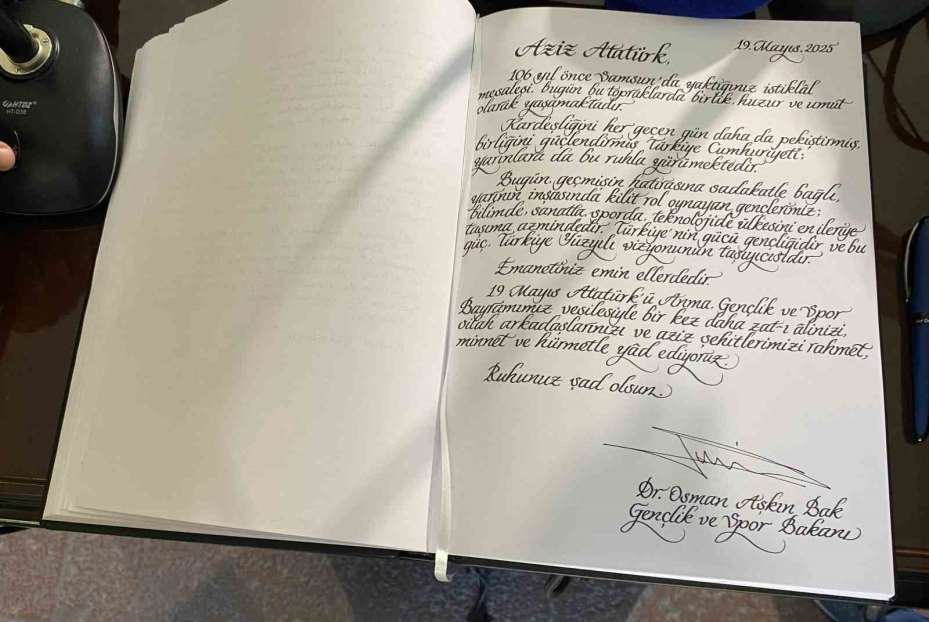 GANTOZ
HT-D38
Aziz Atatürk,
19.Mayıs.2025
106 yıl önce Samsun'da yaktığınız istiklâl
meşalesi, bugün bu topraklarda birlik, huzur ve umut
olarak yaşamaktadır.
Kardeşliğini her geçen gün daha da pekiştirmiş,
birliğini güçlendirmiş Türkiye Cumhuriyeti;
yarınlara da bu ruhla yürümektedir.
Bugün, geçmişin hatırasına sadakatle bağlı,
yarının inşasında kilit rol oynayan gençlerimiz;
bilimde, sanatta, sporda, teknolojide ülkesini en ileriye
taşıma azmindedir. Türkiye'nin gücü gençliğidir ve bu
güç, Türkiye Yüzyılı vizyonunun taşıyıcısıdır.
Emanetiniz emin ellerdedir.
19 Mayıs Atatürk'ü Anma, Gençlik ve Spor
Bayramımız vesilesiyle bir kez daha zat-ı âlinizi,
silah arkadaşlarınızı ve aziz şehitlerimizi rahmet,
minnet ve hürmetle yâd ediyoruz.
Ruhunuz şad olsun.
Dr. Osman Aşkın Bak
Gençlik ve Spor Bakanı